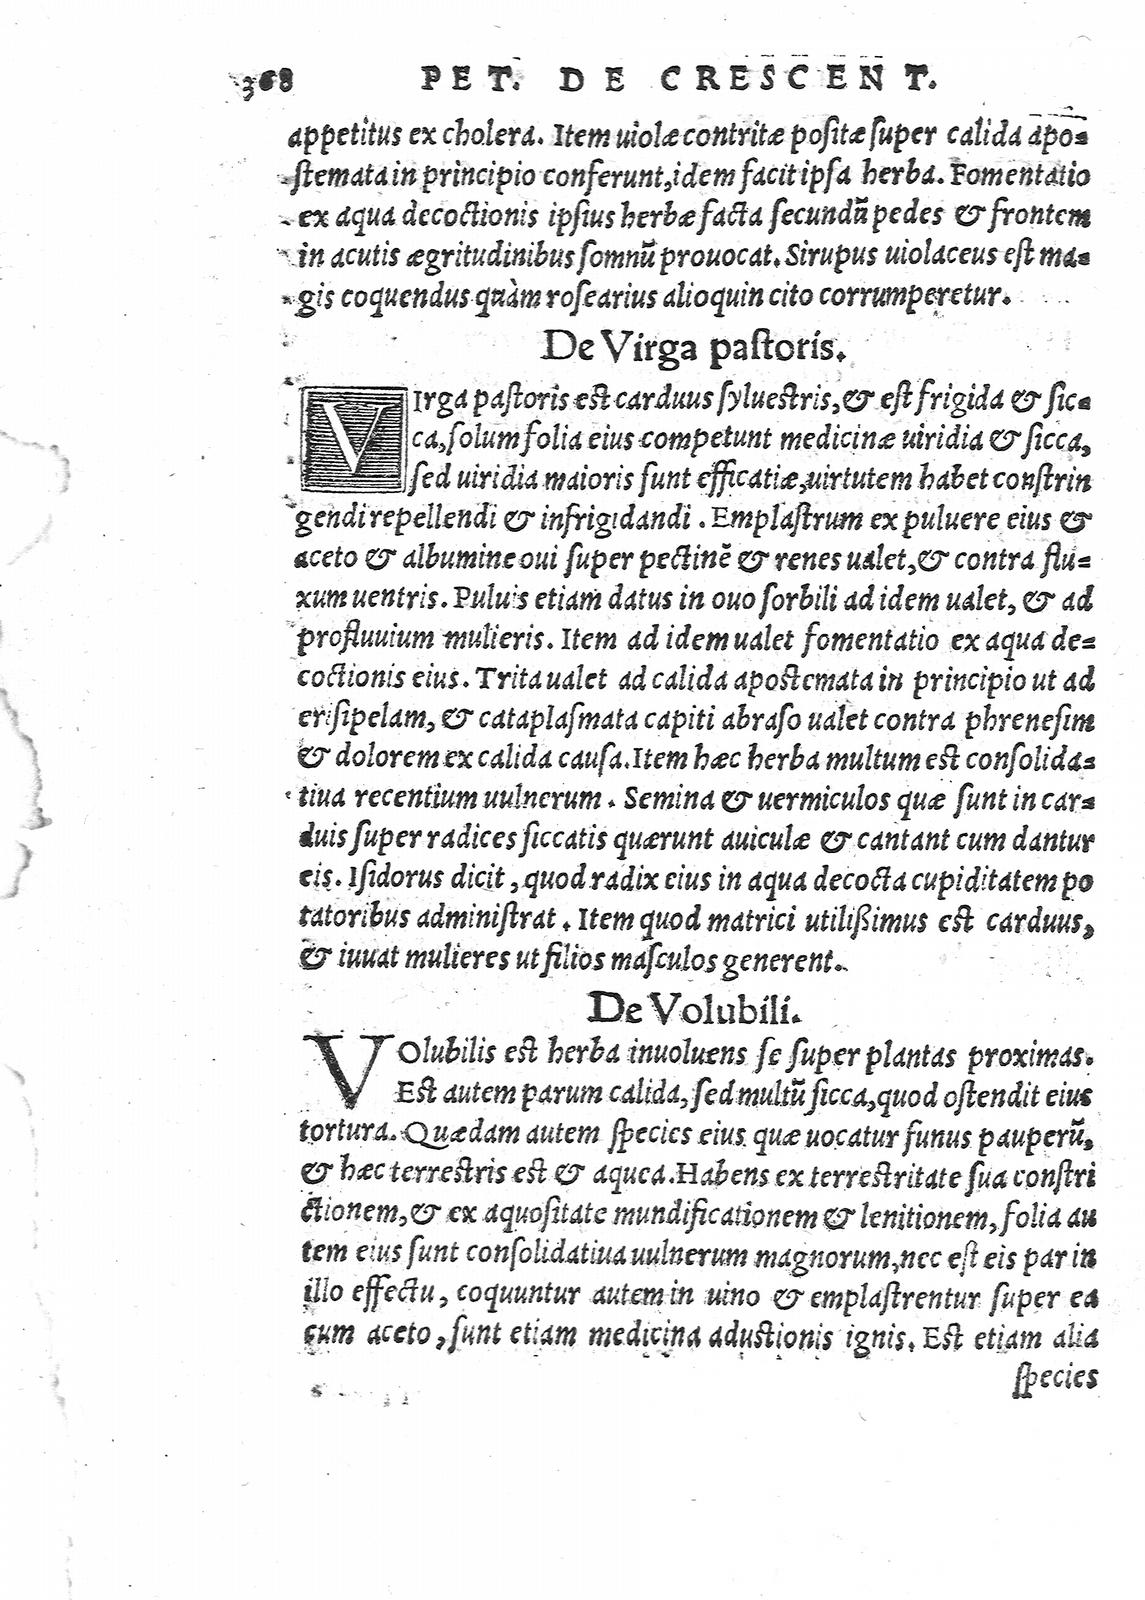 368 PET. DE CRESCENT.
appetitus ex cholera. Item uiolæ contritæ positæ super calida apo=
stemata in principio conferunt, idem facit ipsa herba. Fomentatio
ex aqua decoctionis ipsius herbæ facta secundũ pedes & frontem
in acutis ægritudinibus somnũ prouocat. Sirupus uiolaceus est ma=
gis coquendus quàm rosearius alioquin cito corrumperetur.
De Virga pastoris.
VIrga pastoris est carduus syluestris, & est frigida & sic=
ca, solum folia eius competunt medicinæ uiridia & sicca,
sed uiridia maioris sunt efficatiæ, uirtutem habet constrin
gendi repellendi & infrigidandi. Emplastrum ex puluere eius &
aceto & albumine oui super pectinẽ & renes ualet, & contra flu=
xum uentris. Puluis etiam datus in ouo sorbili ad idem ualet, & ad
profluuium mulieris. Item ad idem ualet fomentatio ex aqua de=
coctionis eius. Trita ualet ad calida apostemata in principio ut ad
erisipelam, & cataplasmata capiti abraso ualet contra phrenesim
& dolorem ex calida causa. Item hæc herba multum est consolida=
tiua recentium uulnerum. Semina & uermiculos quæ sunt in car=
duis super radices siccatis quærunt auiculæ & cantant cum dantur
eis. Isidorus dicit, quod radix eius in aqua decocta cupiditatem po
tatoribus administrat. Item quod matrici utilißimus est carduus,
& iuuat mulieres ut filios masculos generent.
De Volubili.
VOlubilis est herba inuoluens se super plantas proximas.
Est autem parum calida, sed multũ sicca, quod ostendit eius
tortura. Quædam autem species eius quæ uocatur funus pauperũ,
& hæc terrestris est & aquea. Habens ex terrestritate sua constri
ctionem, & ex aquositate mundificationem & lenitionem, folia au
tem eius sunt consolidatiua uulnerum magnorum, nec est eis par in
illo effectu, coquuntur autem in uino & emplastrentur super ea
cum aceto, sunt etiam medicina adustionis ignis. Est etiam alia
species